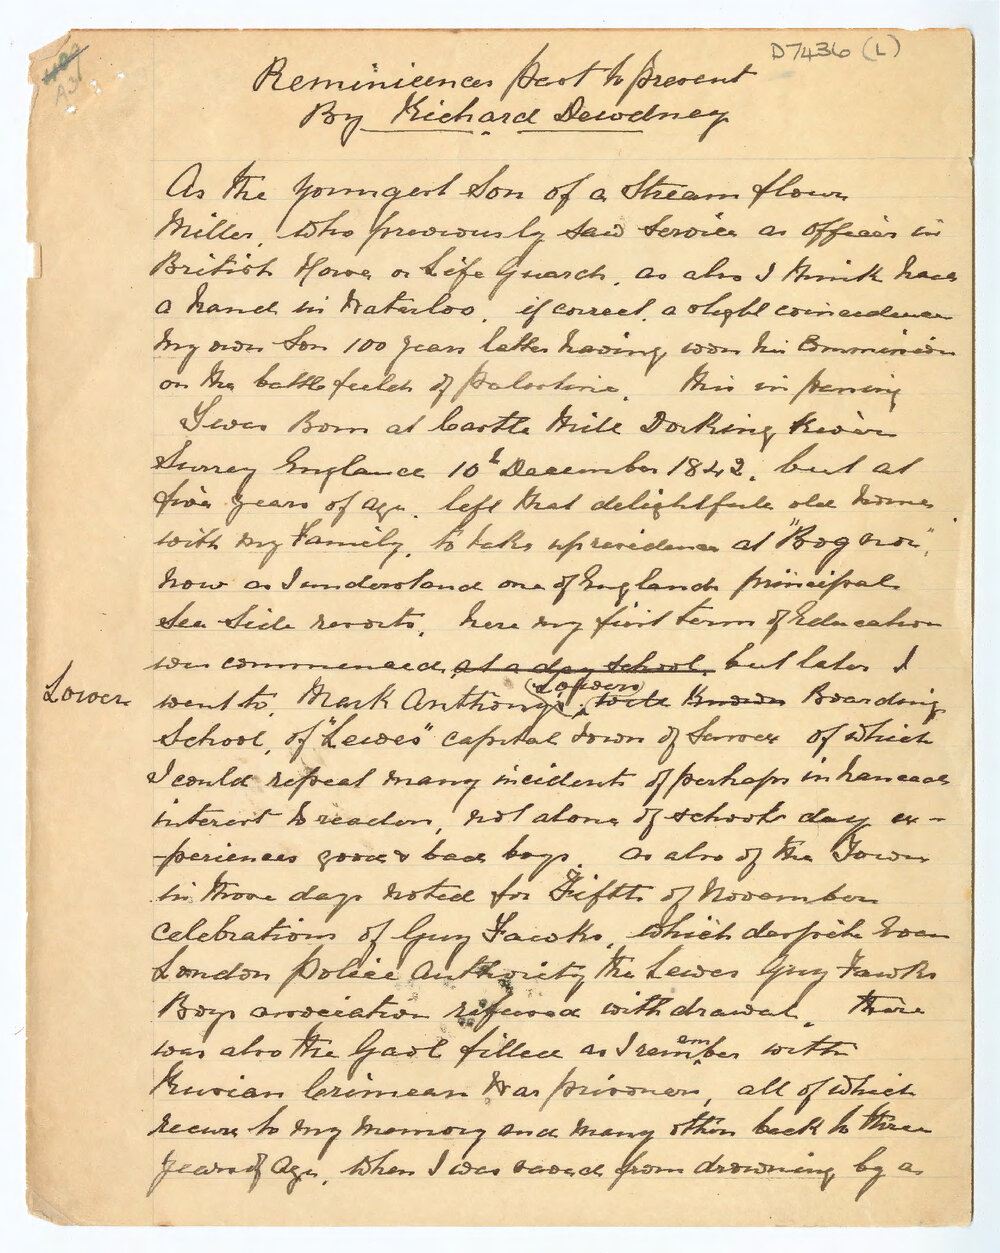 D7436 (L)
Reminicences past to present
By Richard Dewdney
As the youngest Son of a Stream flour
Miller, who previously saw service as officer in
British Horse or Life Guards, as also I think had
a hand in Waterloo, if correct, a slight coincidence
my own Son 100 years latter having won his Commission
on the battle fields of Palestine. this in passing
I was Born at Castle Mill Dorking River
Surrey England 10th December 1842, but at
five years of age, left that delightfull old home
with my Family, to take up residence at "Bognor",
now as I understand one of Englands principal
Sea Side resorts, here my first term of Education
was commenced, at a day school, but later I
Lower
went to, Mark Anthony (Lowers) well known Boarding
School, of "Lewes" capital town of Sussex of which
I could repeat many incidents of perhaps in hanced
interest to readers, not alone of schools day ex-
-periences good & bad boys, as also of the Town
in those days noted for Fifth of November
Celebrations of Guy Fawks, which despite Even
London Police Authority the Lewes Guy Fawks
Boys association refused withdrawal, there
was also the Gaol filled as I remember with
Russian Crimean War prisoners, all of which
recurs to my memory and many others back to three
years of age, when I was saved from drowning by a